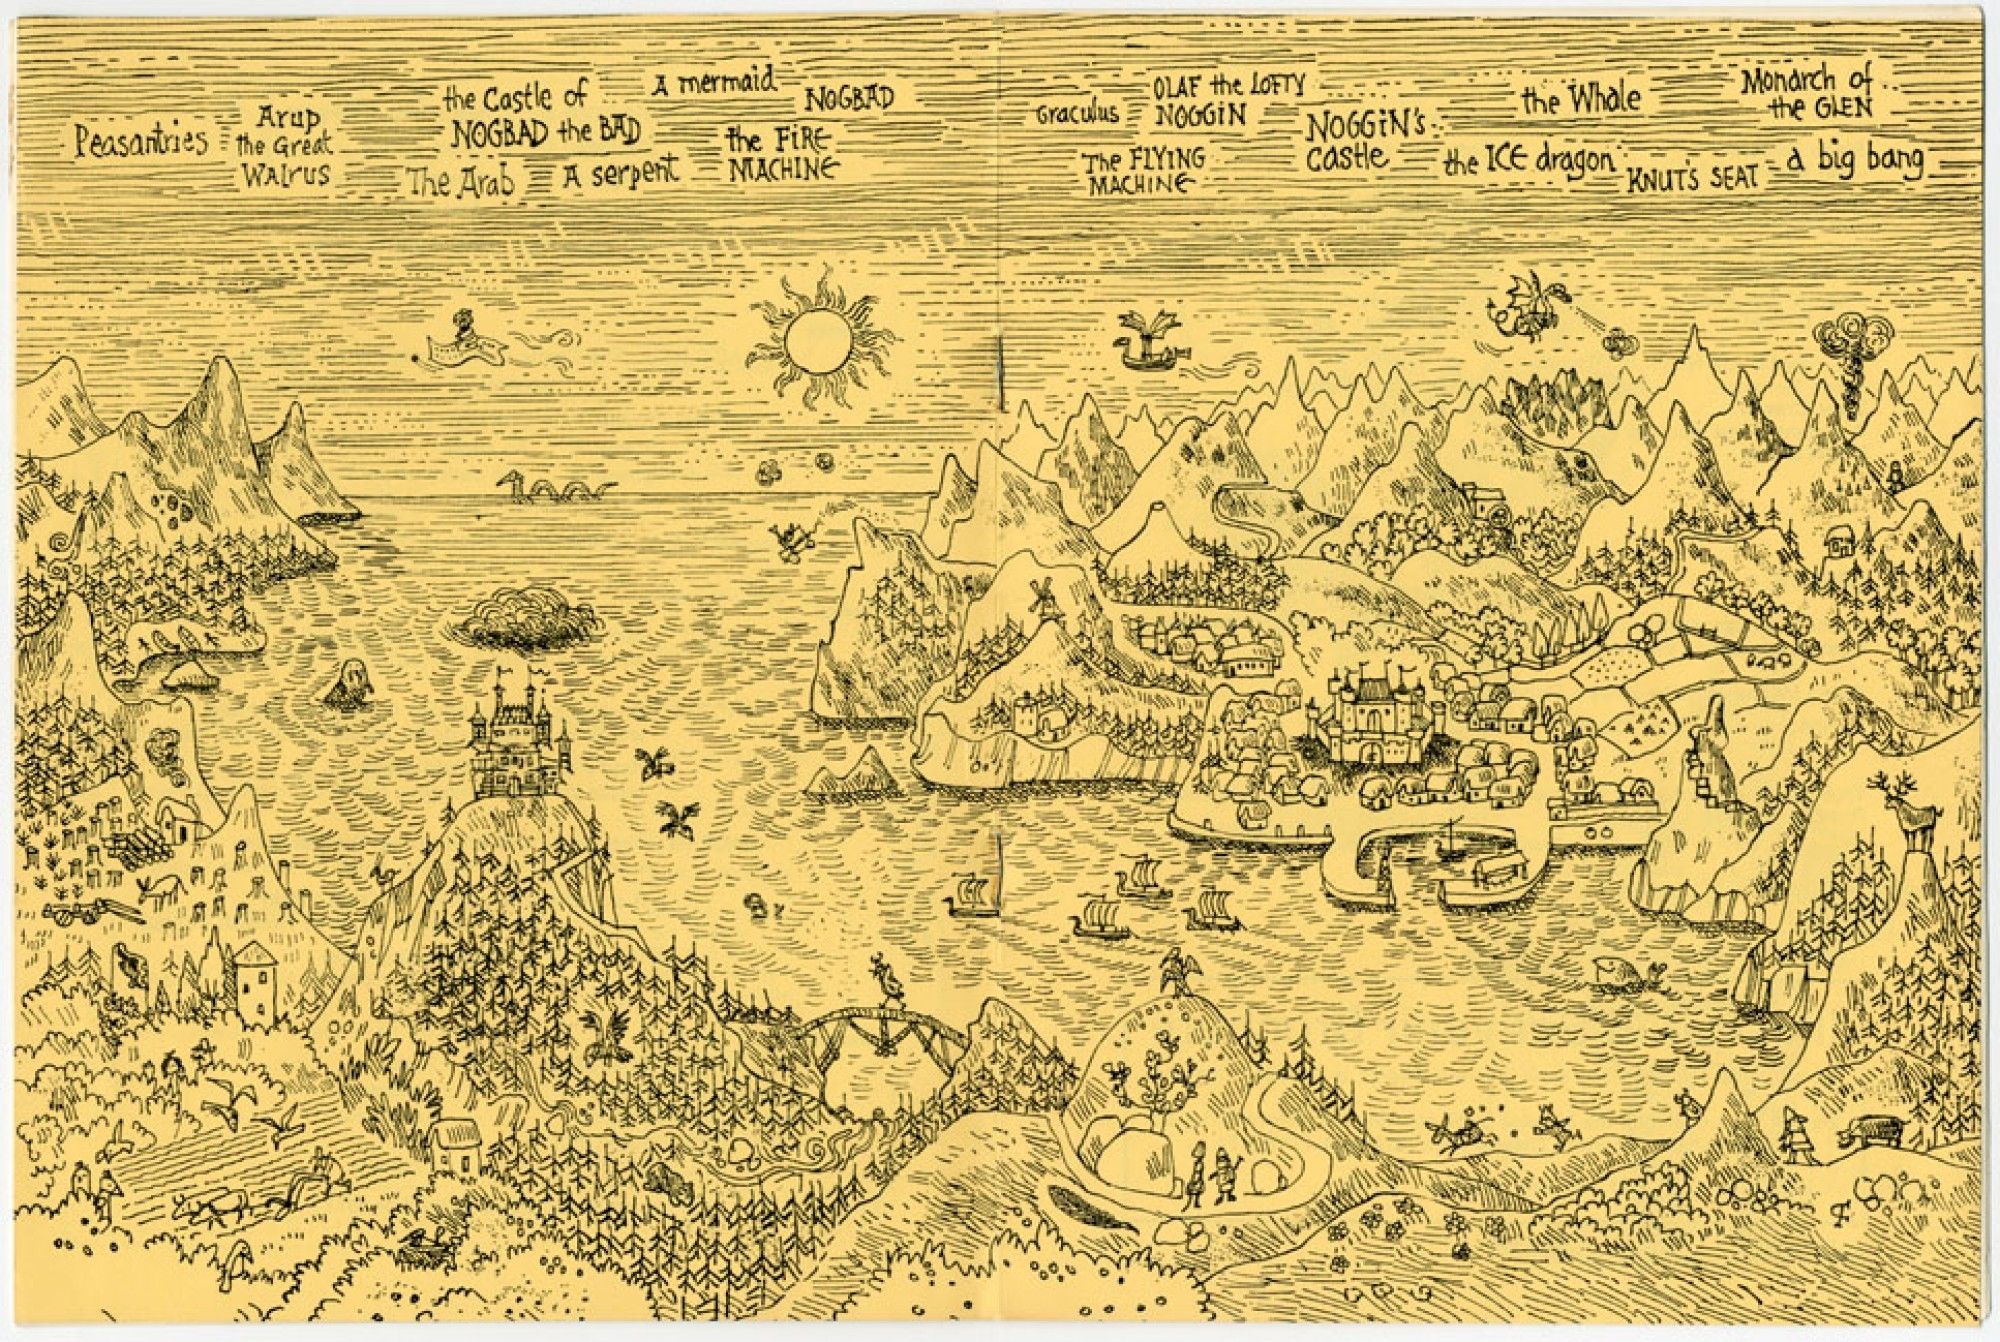 Peasantries
Arup
the Great
WALRUS
the Castle of
NOGBAD the BAD
The Arab
A serpent
A mermaid
NOGBAD
the FIRE
MACHINE
Graculus
OLAF the LOFTY
NOGGIN
The FLYING
MACHINE
NOGGIN'S
Castle
the Whale
the ICE dragon
KNUT'S SEAT
Monarch of
the GLEN
a big bang